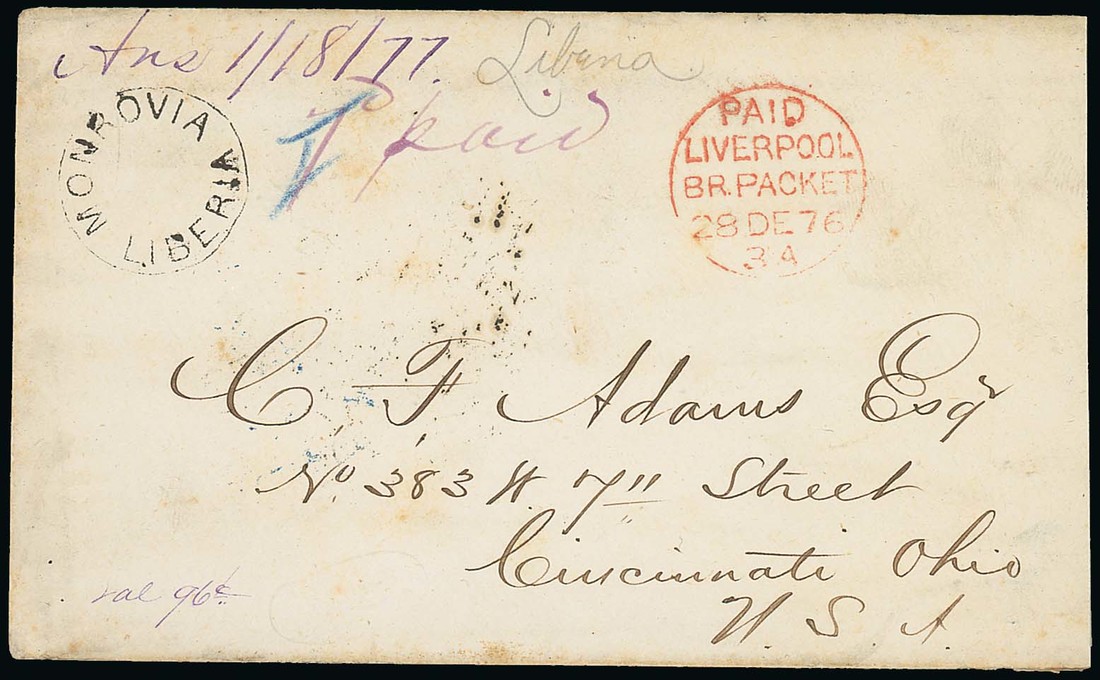 Ans 1/18/77.
Liberia
MONROVIA LIBERIA
paid
PAID
LIVERPOOL
BR. PACKET
28 DE 76
3A
C. F. Adams Esqr
No. 383 W. 7" Street
Cincinnati Ohio
U. S. A.
val 96¢